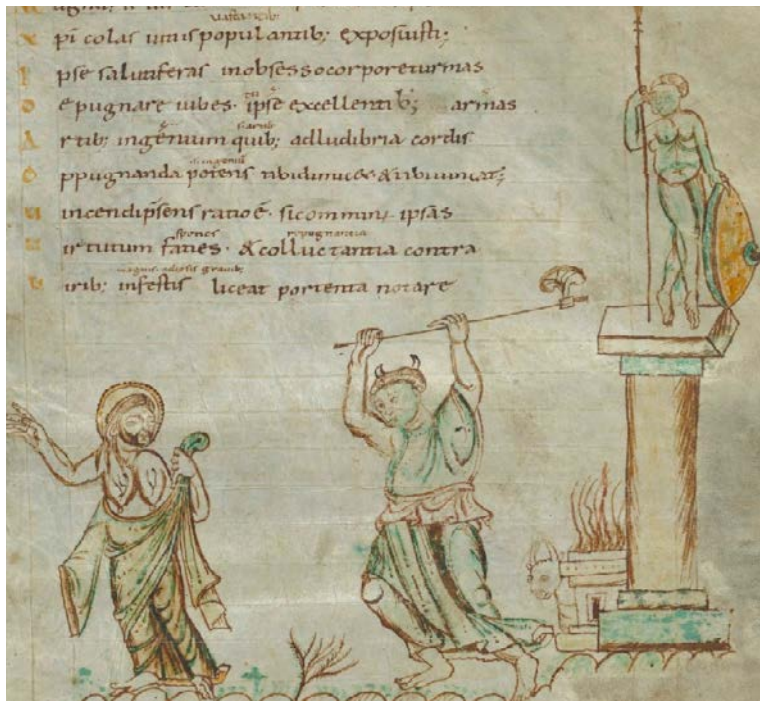 uastantib;
x pi colas uitiis populantib; exposuisti;
I pse salutiferas inobsesso corpore turmas
D epugnare iubes· ipse excellentib; armas
A rtib; ingenium quib; ad ludibria cordis
O ppugnanda potens tibi dimicet & tibi uincat;
U incendi psens ratio ē· si comminus ipsas
U irtutum faties· & colluctantia contra
U irib; infestis liceat portenta notare